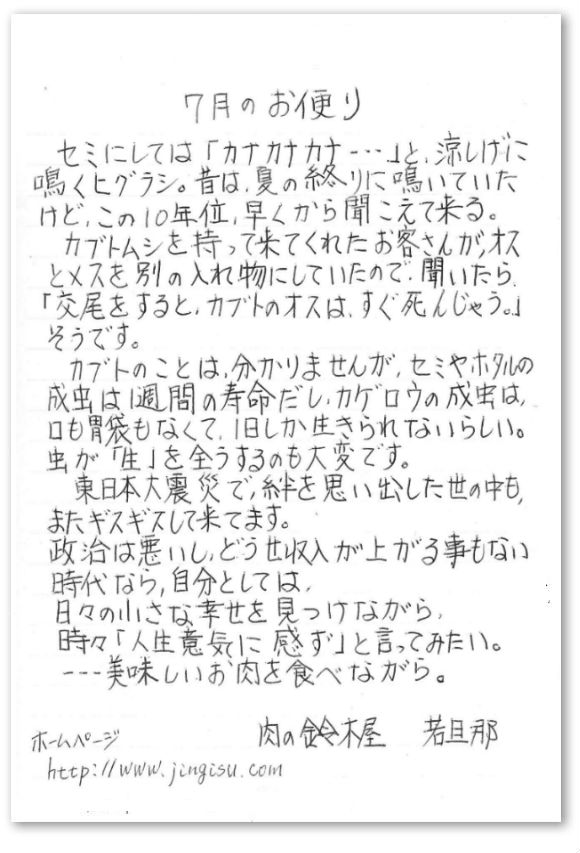 7月のお便り
セミにしては「カナカナカナ---」と、涼しげに
鳴くヒグラシ。昔は、夏の終りに鳴いていた
けど、この10年位、早くから聞こえて来る。
カブトムシを持って来てくれたお客さんが、オス
とメスを別の入れ物にしていたので、聞いたら、
「交尾をすると、カブトのオスは、すぐ死んじゃう。」
そうです。
カブトのことは、分かりませんが、セミやホタルの
成虫は1週間の寿命だし、カゲロウの成虫は、
口も胃袋もなくて、1日しか生きられないらしい。
虫が「生」を全うするのも大変です。
東日本大震災で、絆を思い出した世の中も、
またギスギスして来てます。
政治は悪いし、どうせ収入が上がる事もない
時代なら、自分としては、
日々の小さな幸せを見つけながら、
時々「人生意気に感ず」と言ってみたい。
---美味しいお肉を食べながら。
肉の鈴木屋 若旦那
ホームページ
http://www.jingisu.com